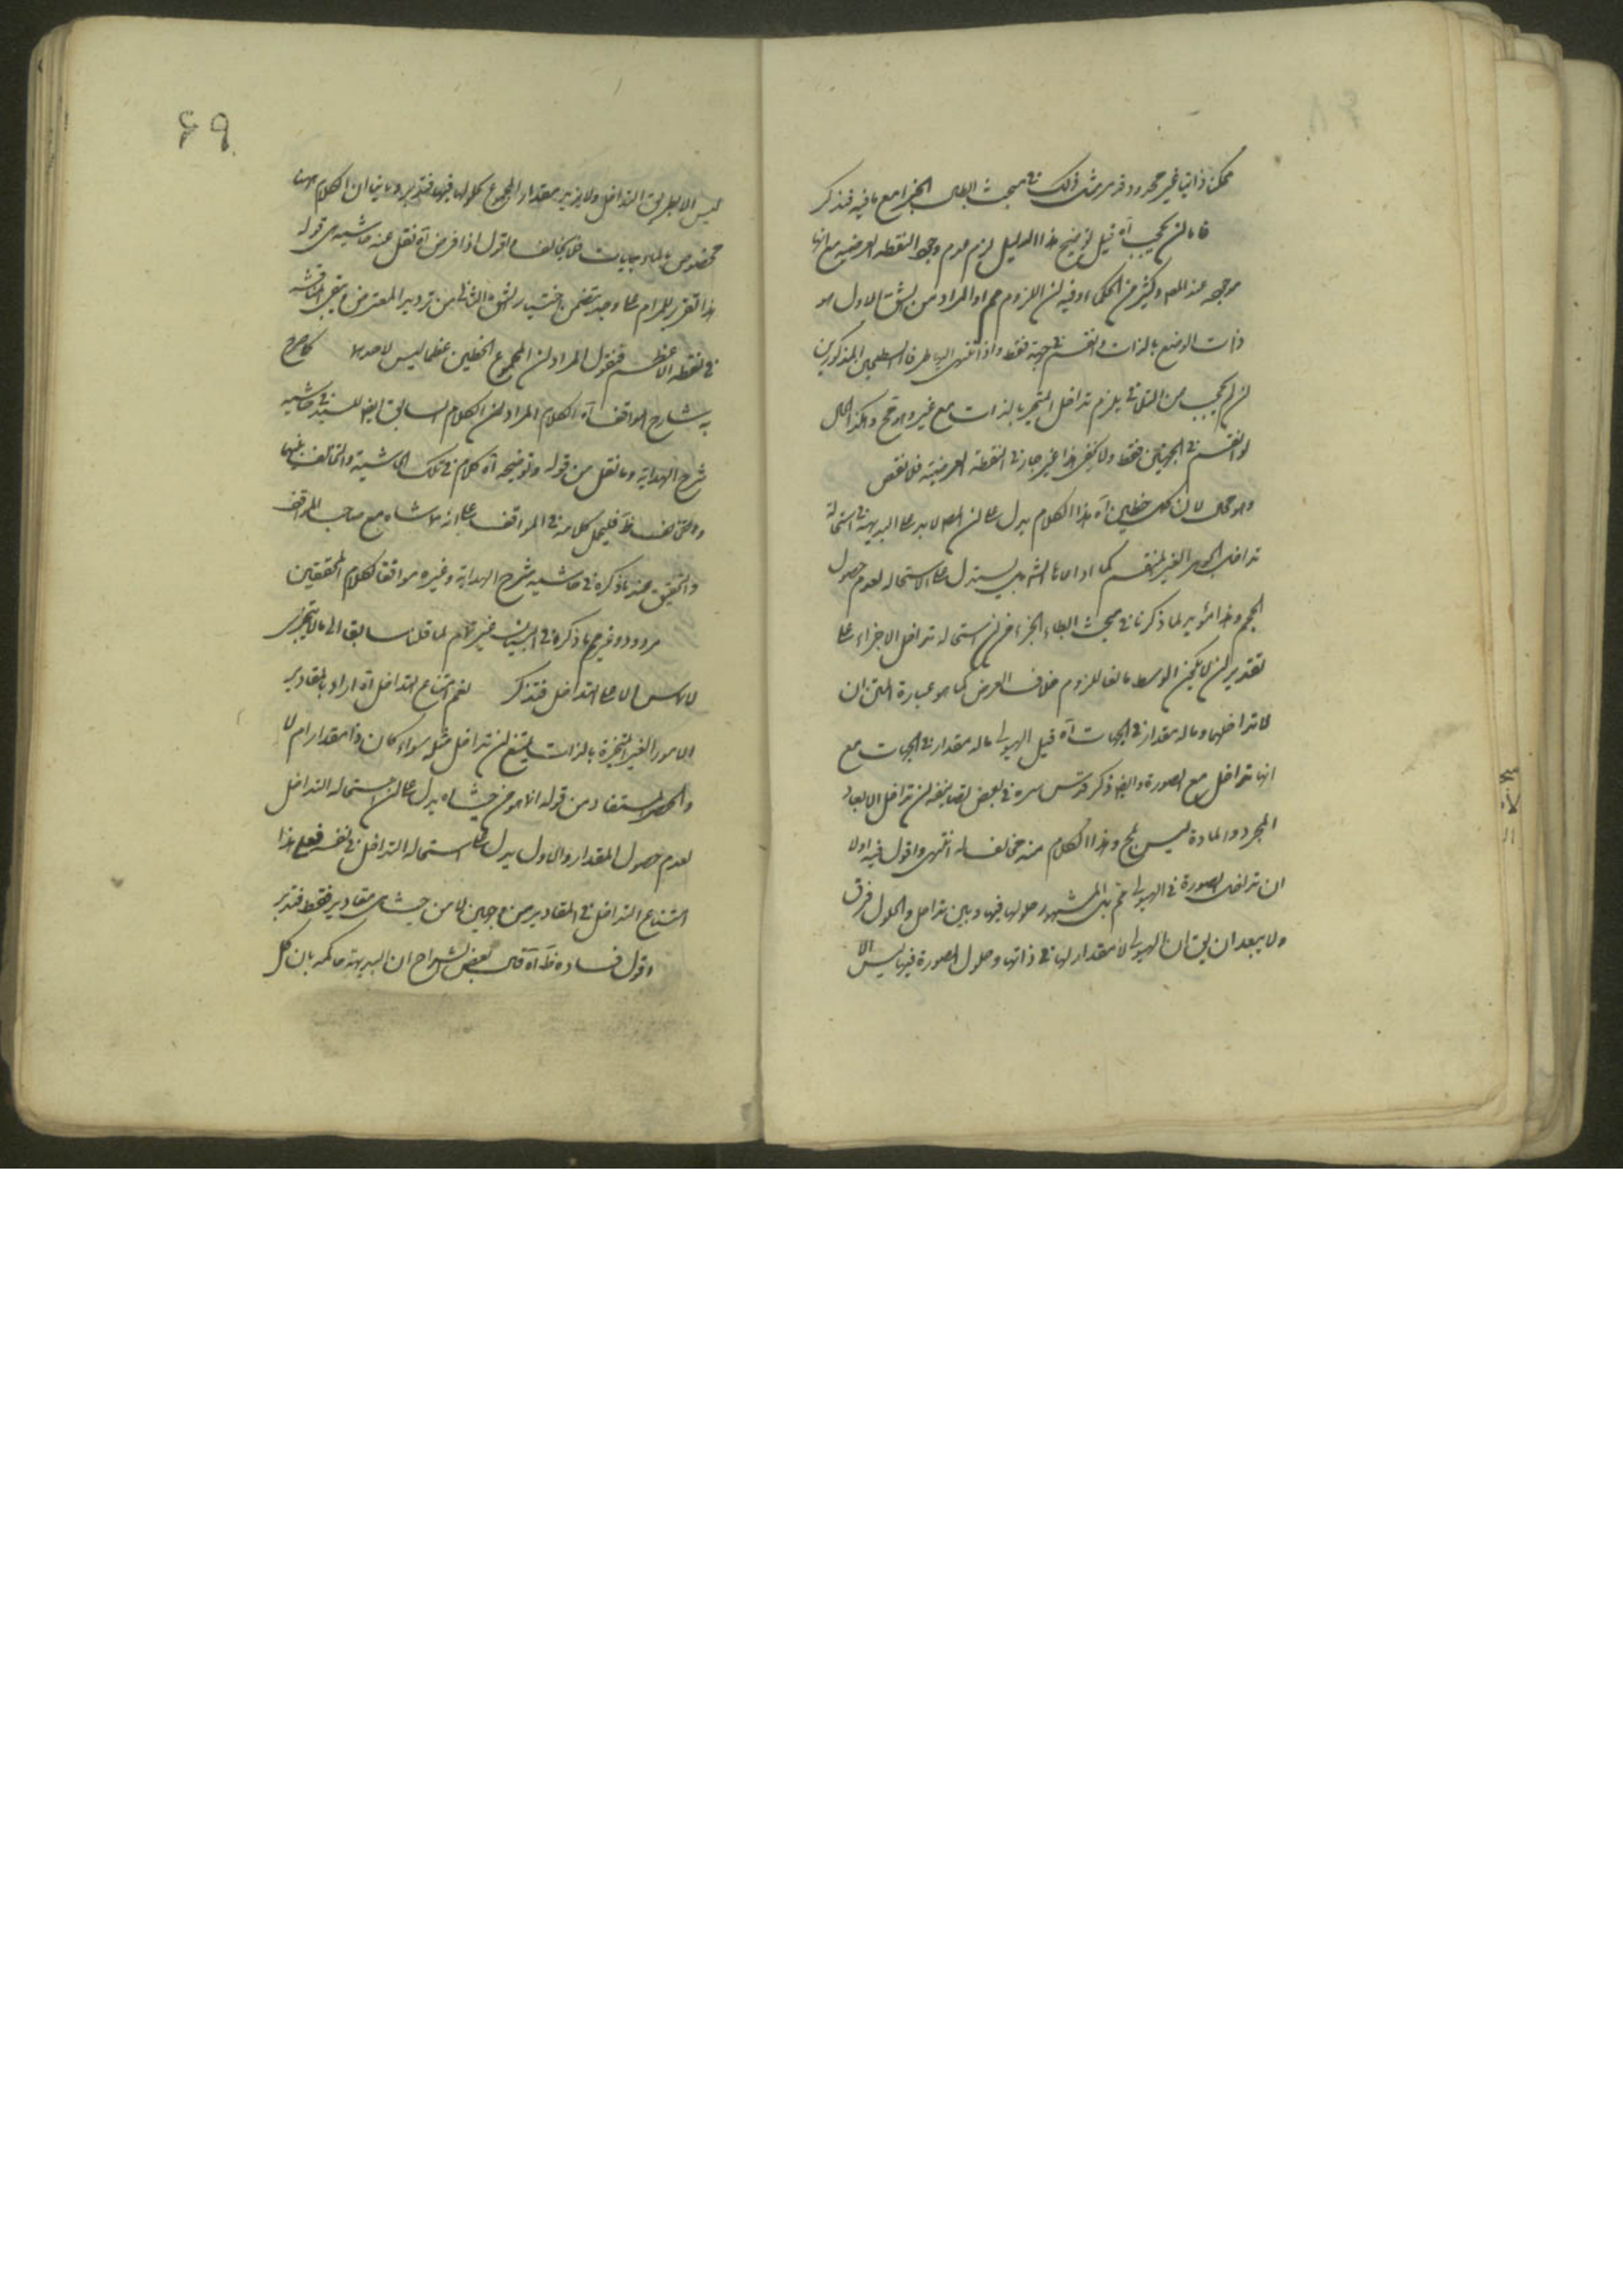 ممكن ذاتيا غير محدود قد مر مثل ذلك في مبحث ابطال الجزء مع ما فيه فتذكر
فاما ان يحجب آه قيل توضيح هذا الدليل لزم عدم وجود النقطة العرضية مع انها
موجودة عند المص وكثير من الحكماء وفيه ان اللزوم مم اذ المراد من الشق الاول هو
ذات الوضع بالذات وانقسم في جهة فقط واذا انتهى اليها طرفا السطحين المذكورين
ان لم يحجب من التلاقي يلزم تداخل المتحيز بالذات مع غيره وهو مح وهكذا الحال
لو انقسم في الجهتين فقط ولا يخفى هذا غير جار في النقطة العرضية فلا نقص
وهو محال لان كل خطين آه هذا الكلام يدل على ان المص لا يدعى البديهة في استحالة
تداخل الجوهر الغير المنقسم كما ادعاها الش بل يستدل على الاستحالة لعدم حصول
الحجم وهذا مؤيد لما ذكرنا في مبحث ابطال الجزء من ان استحالة تداخل الاجزاء على
تقدير ان لا يكون الوسط مانعا للزوم خلاف الفرض كما هو عبارة المتن ان
لا تداخلها وما له مقدار في الجهات آه قيل الهيولى ما له مقدار في الجهات مع
انها تداخل مع الصورة وايضا ذكر قدس سره في بعض تصانيفه ان تداخل الابعاد
المجرد والمادة ليس بمح وهذا الكلام منه مخالف له انتهى واقول فيه اولا
ان تداخل الصورة في الهيولى مم بل المشهور حلولها فيها وبين تداخل والحلول فرق
ولا يبعد ان يق ان الهيولى لا مقدار لها في ذاتها وحلول الصورة فيها ليس الا
٦٩
ليس الا بطريق التداخل ولا يزيد مقدار المجموع بحلولها فيها فتدبر وثانيا ان الكلام ههنا
مخصوص بالماديات فلا يخالف اقول اذا فرض آه نقل عنه حاشية هي قوله
هذا تقرير للمرام على وجه يتضمن اختيار الشق الثاني من ترديد المعترض ويبقى المناقشة
في لفظه الاعظم فنقول المراد ان المجموع الخطين عظما ليس لاحدهما كما صرح
به شارح المواقف آه الكلام المراد من الكلام السابق ايضا للسيد في حاشية
شرح الهداية وما نقل من قوله وتوضيحه آه كلام في تلك الحاشية والتخالف بينهما
فليحمل كلامه في المواقف على انه مماشاه مع صاحب المواقف
والتحقيق عنده ما ذكره في حاشية شرح الهداية وغيره موافقا لكلام المحققين
مردود وغرضهم ما ذكره في البيان غير تام لما قلنا سابق الى ما لا يتجزى
لا يماس الا على التداخل فتذكر نعم امتناع التداخل آه اراد بالمقادير
الامور الغير المتحيزة بالذات يمتنع ان تداخل مثله سواء كان ذا مقدار ام لا
والحصر المستفاد من قوله انما هو من حيث اه يدل على ان استحالة التداخل
لعدم حصول المقدار والاول يدل على استحالة التداخل في نفسه فعلى هذا
امتناع التداخل في المقادير من وجهين لا من حيث هي مقادير فقط فتدبر
اقول فساده ظ آه قال بعض الشراح ان البديهة حاكمة بان كل